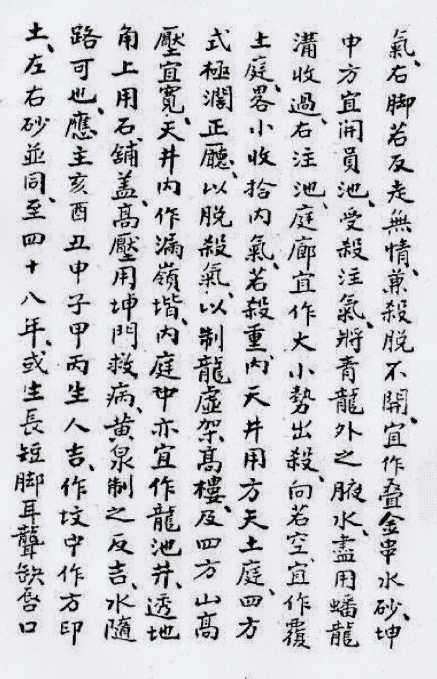 氣、右脚若反走無情、兼殺脱不開、宜作叠金串水砂、坤
申方宜開員池、受殺注氣、將青龍外之腋水、盡用蟠龍
溝收過、右注池、庭廊宜作大小勢出殺、向若空、宜作覆
土庭、畧小收拾内氣、若殺重、内天井用方天土庭、四方
式極濶正廳、以脱殺氣、以制龍虛架高樓、及四方山高
壓宜寬、天井内作漏嶺堦、内庭中亦宜作龍池井、透地
角上用石鋪盖、高壓用坤門救病、黄泉制之反吉、水隨
路可也、應主亥酉丑申子甲丙生人吉、作坟中作方印
土、左右砂並同、至四十八年、或生長短脚耳聾缺唇口